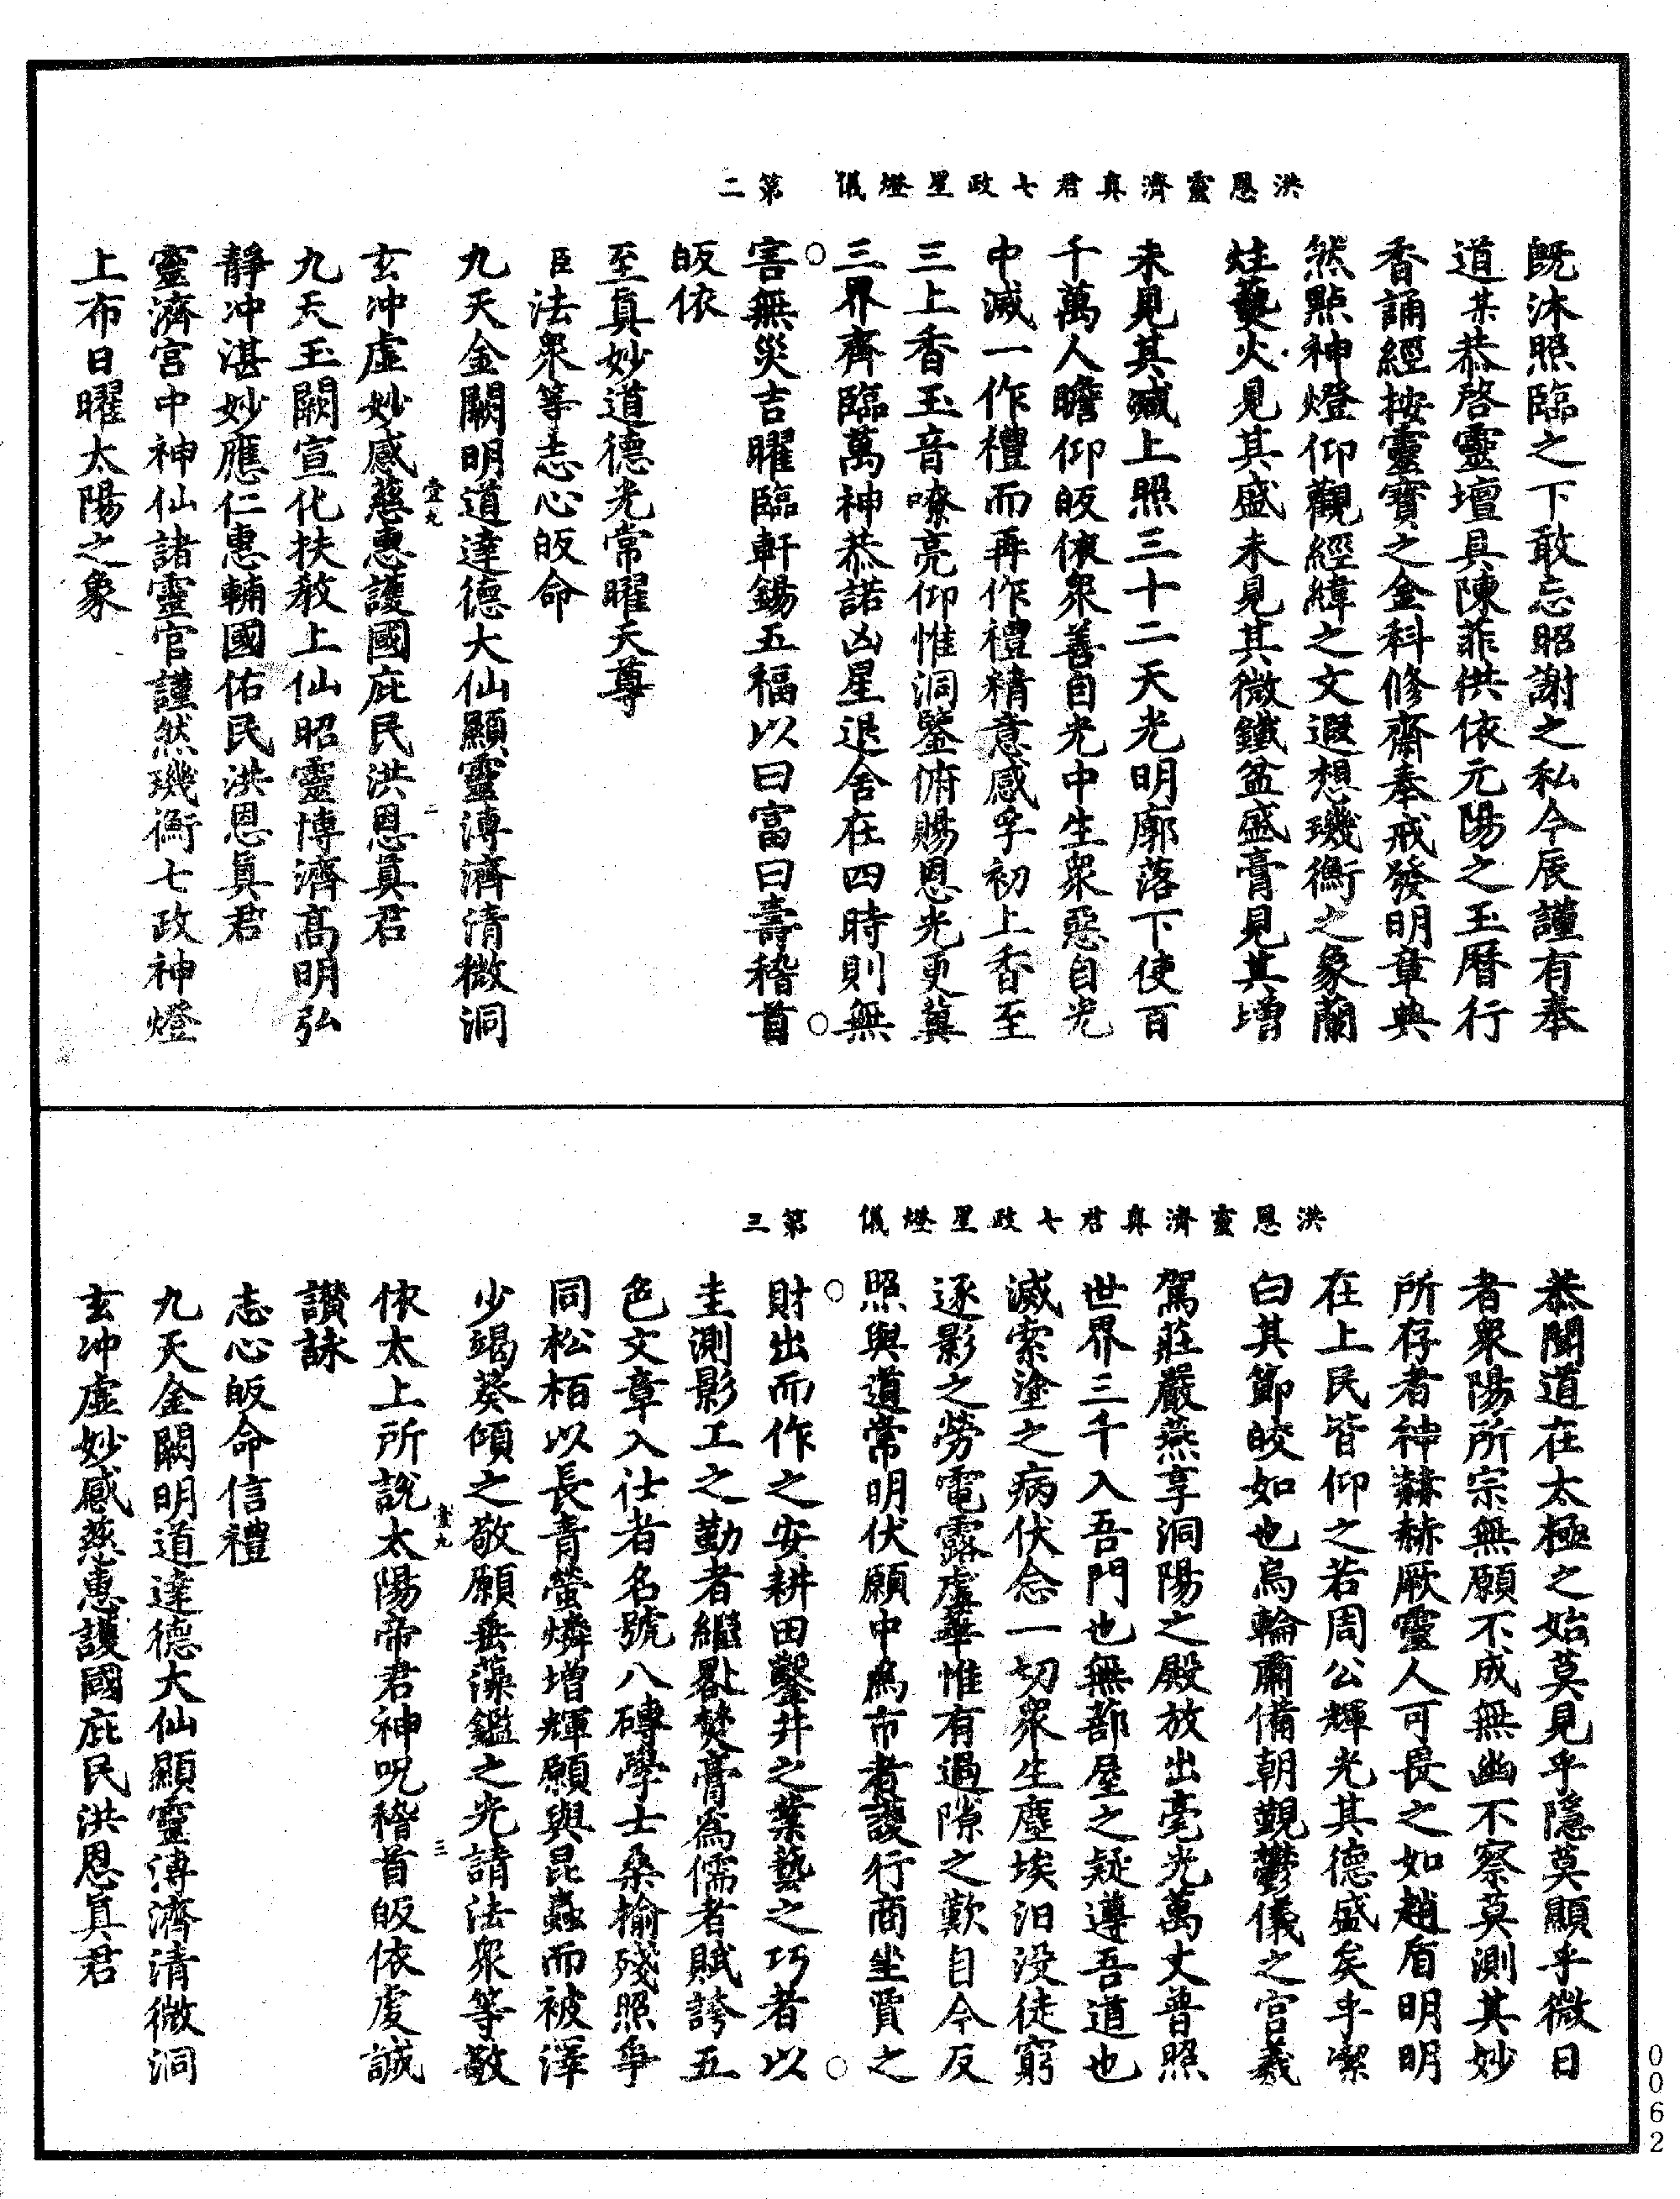 洪恩靈濟真君七政星燈儀 第二
既沐照臨之下敢忘昭謝之私今辰謹有奉
道某恭啓靈壇具陳菲供依元陽之玉曆行
香誦經按靈寶之金科修齋奉戒發明章典
然點神燈仰觀經緯之文遐想璣衡之象蘭
炷爇火見其盛未見其微鐵盆盛膏見其增
未見其減上照三十二天光明廓落下使百
千萬人瞻仰皈依衆善自光中生衆惡自光
中滅一作禮而再作禮精意感孚初上香至
三上香玉音嘹亮仰惟洞鑒俯賜恩光更冀
三界齊臨萬神恭諾凶星退舍在四時則無
害無災吉曜臨軒錫五福以曰富曰壽稽首
皈依
至真妙道德光常曜天尊
臣法衆等志心皈命
九天金闕明道達德大仙顯靈溥濟清微洞
玄冲虛妙感慈惠護國庇民洪恩真君
壹九 二
九天玉闕宣化扶教上仙昭靈博濟高明弘
靜冲湛妙應仁惠輔國佑民洪恩真君
靈濟宮中神仙諸靈官謹然璣衡七政神燈
上布日曜太陽之象
洪恩靈濟真君七政星燈儀 第三
恭聞道在太極之始莫見乎隱莫顯乎微日
者衆陽所宗無願不成無幽不察莫測其妙
所存者神赫赫厥靈人可畏之如趙盾明明
在上民皆仰之若周公輝光其德盛矣乎潔
白其節皎如也烏輪肅備朝覲鬱儀之宮羲
駕莊嚴燕享洞陽之殿放出毫光萬丈普照
世界三千入吾門也無蔀屋之疑遵吾道也
滅索塗之病伏念一切衆生塵埃汩没徒窮
逐影之勞電露虛華惟有過隙之歎自今反
照與道常明伏願中爲市者護行商坐賈之
財出而作之安耕田鑿井之業藝之巧者以
圭測影工之勤者繼晷焚膏爲儒者賦誇五
色文章入仕者名號八磚學士桑榆殘照爭
同松栢以長青螢燐增輝願與昆蟲而被澤
少竭葵傾之敬願垂藻鑑之光請法衆等敬
依太上所說太陽帝君神呪稽首皈依虔誠
壹九 三
讚詠
志心皈命信禮
九天金闕明道達德大仙顯靈溥濟清微洞
玄冲虛妙感慈惠護國庇民洪恩真君
0062